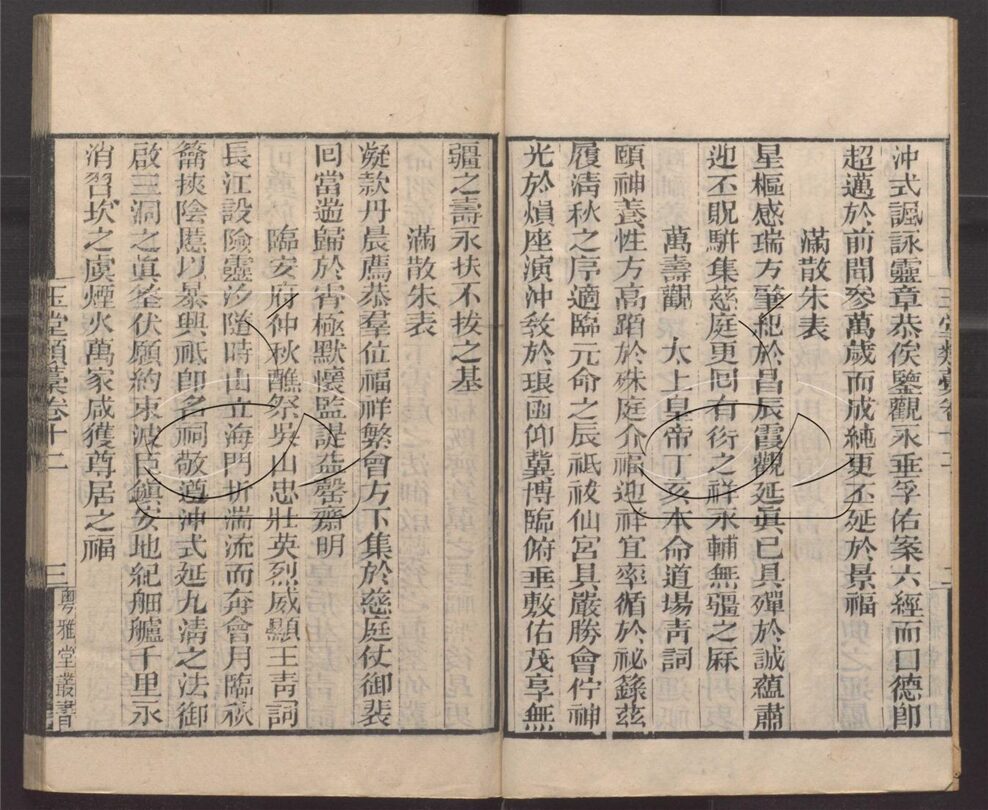 沖式諷詠靈章恭俟鑒觀永垂孚佑案六經而口德卽
超邁於前聞參萬歲而成純更丕延於景福
滿散朱表
星樞感瑞方肇紀於昌辰霞觀延眞已具殫於誠蘊肅
迎丕貺騈集慈庭更囘有衍之祥永輔無疆之庥
萬壽觀 太上皇帝丁亥本命道場靑詞
頤神養性方高蹈於殊庭介福迎祥宜率循於祕籙茲
履淸秋之序適臨元命之辰祗祓仙宮具嚴勝會佇神
光於熉座演沖敎於琅函仰冀博臨俯垂敷佑茂享無
疆之壽永扶不拔之基
滿散朱表
凝款丹晨薦恭羣位福祥繁會方下集於慈庭仗御裴
囘當遄歸於霄極默懷監諟益罄齋明
臨安府仲秋醮祭吳山忠壯英烈威顯王靑詞
長江設險靈汐隨時由立海門折湍流而奔會月臨秋
籥挾陰慝以暴興祗卽名祠敬遵沖式延九淸之法御
啟三洞之眞筌伏願約束波臣鎭安地紀舳艫千里永
消習坎之虞煙火萬家咸獲尊居之福
玉堂類藁卷十二
三
粵雅堂叢書